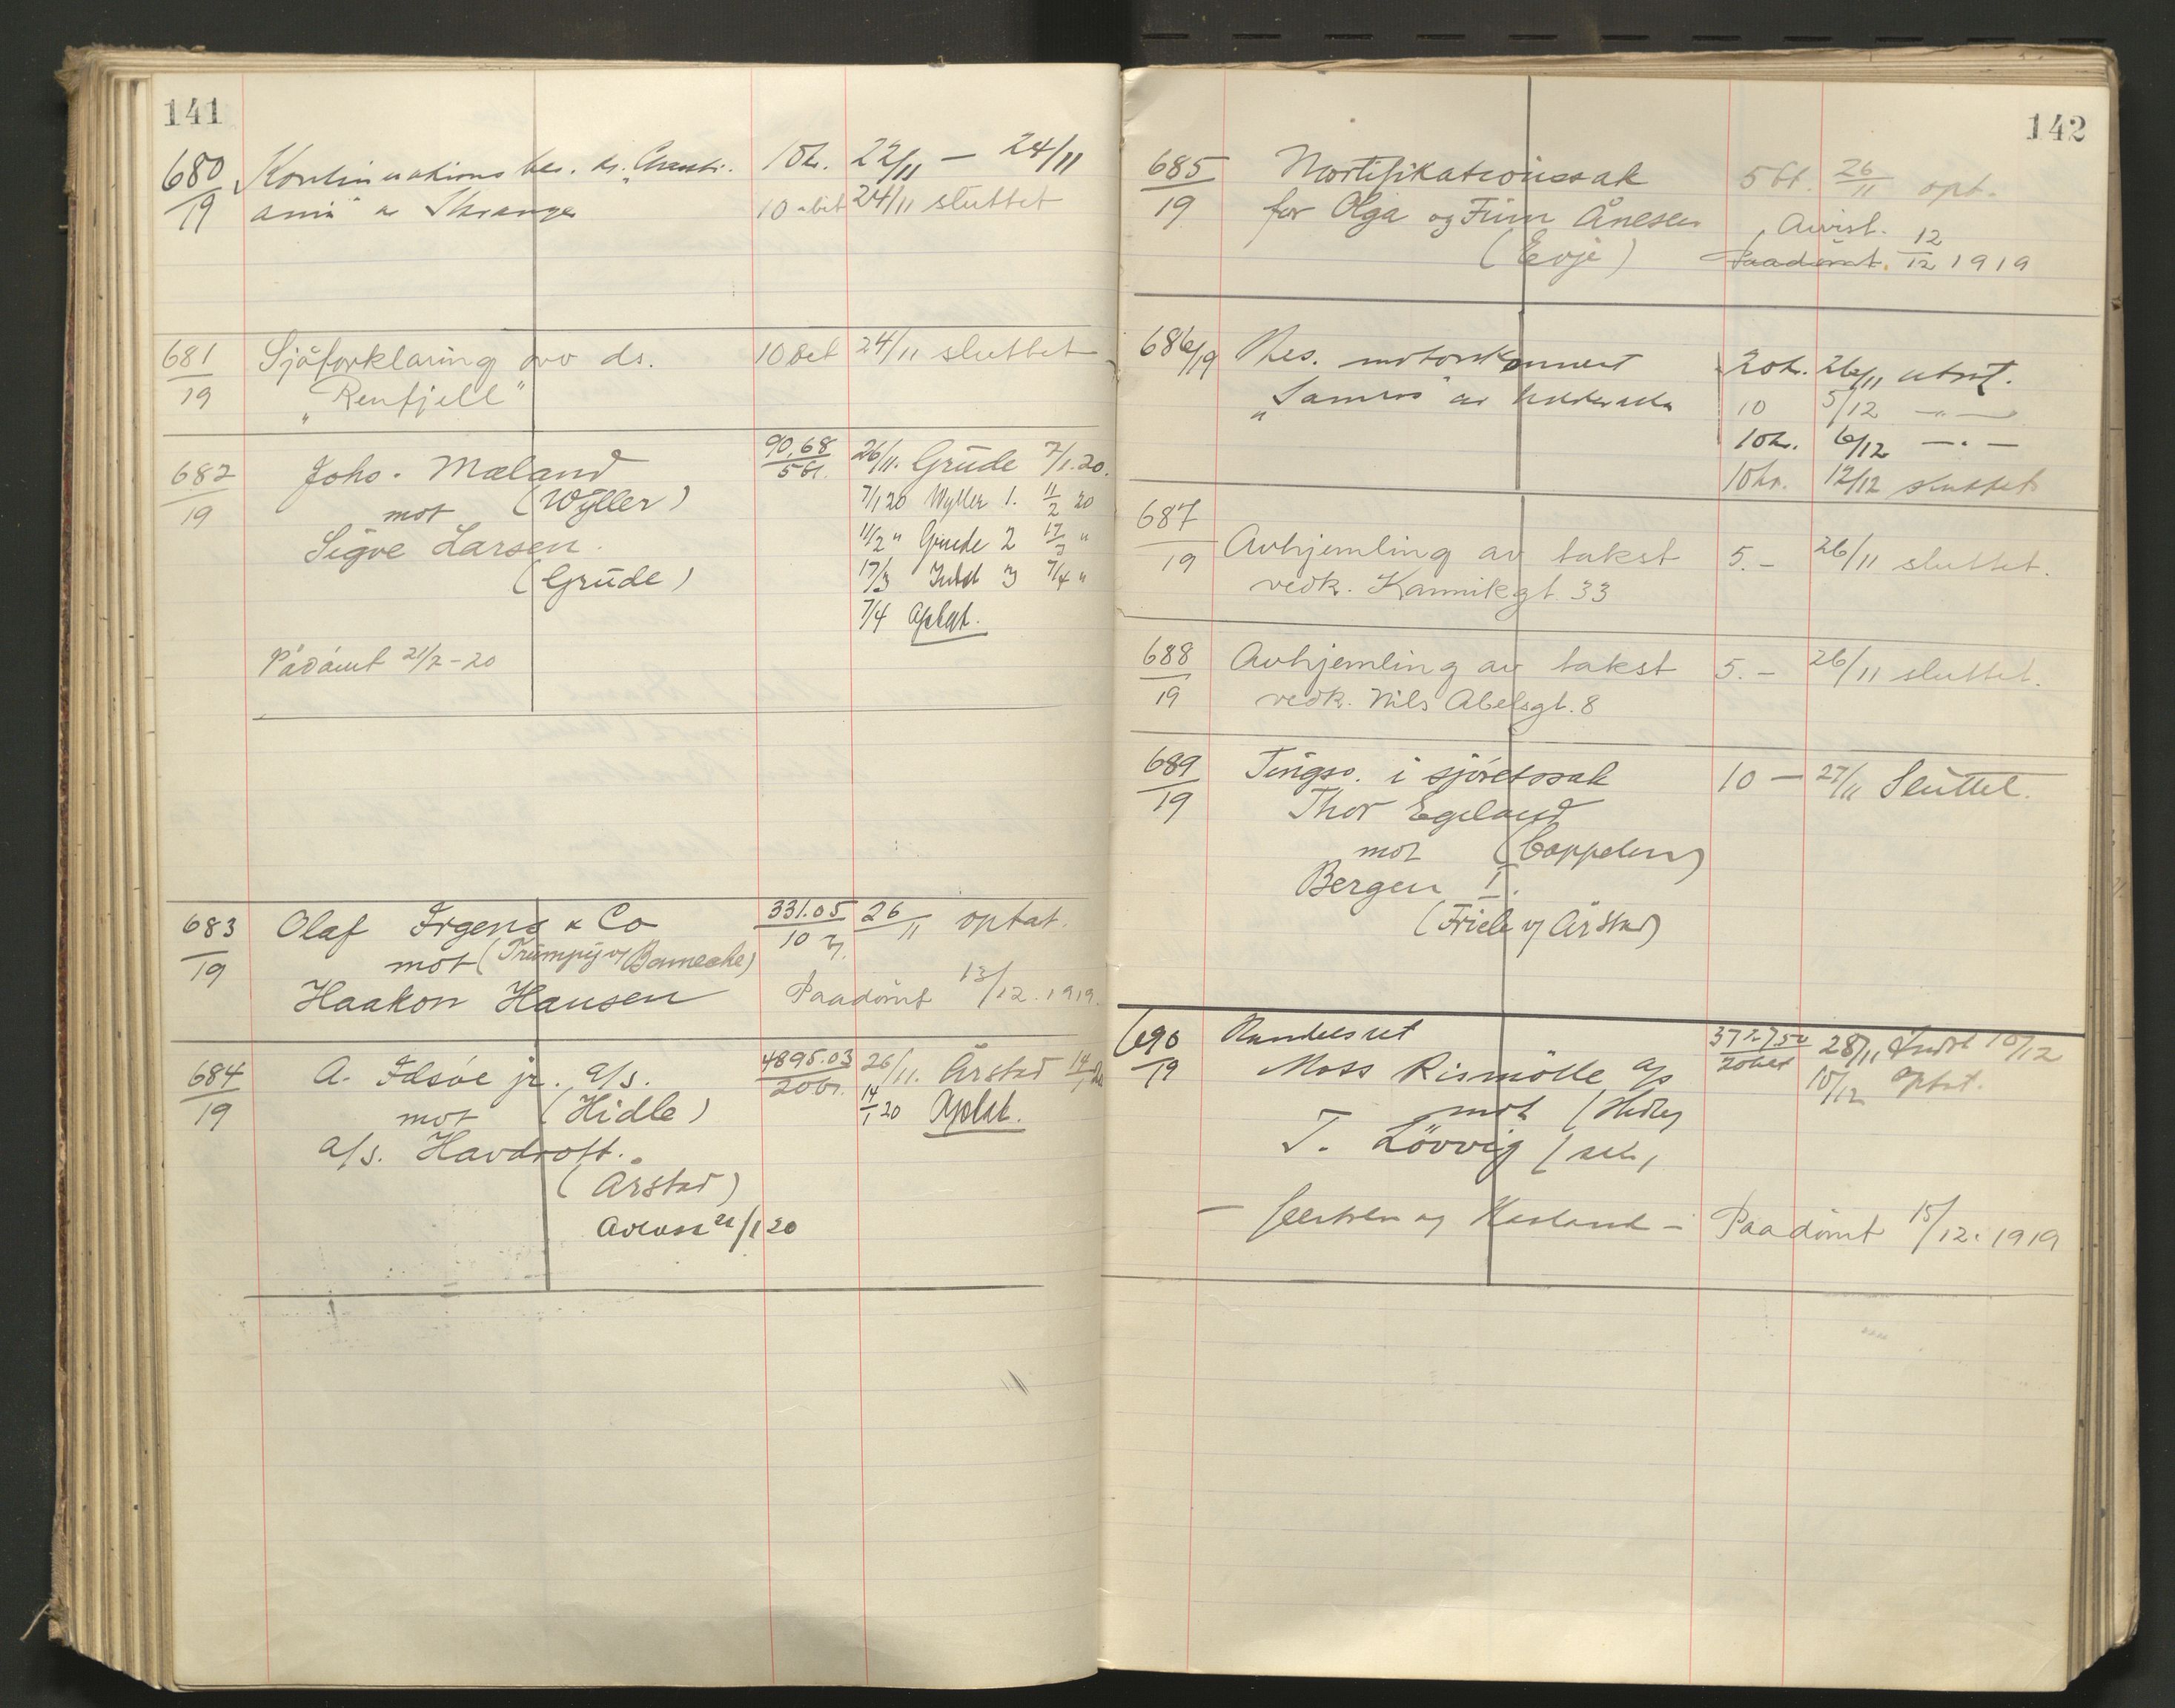 141
680/19 Kontinuations bes. ds. "Christi- 10 kr. 22/11 — 24/11
ania" av Stavanger 10 - bet 24/11 sluttet
681/19 Sjöforklaring ovo ds. 10 bet 24/11 sluttet
"Renfjell"
682/19 Johs. Mæland 90,68/5 bt. 26/11. Grude 7/1.20.
mot (Wyller) 7/1 20 Wyller 1. 11/2 20
Sigve Larsen. 11/2 " Grude 2 17/3 "
(Grude) 17/3 Indst 3 7/4 "
7/4 Optat.
Pådömt 21/7-20
683/19 Olaf Irgens & Co 331.05/10 26/11 optat.
mot (Trumpy v/ Bannecke)
Haakon Hansen Paadömt 13/12.1919.
684/19 A. Idsöe jr. a/s. 4895.03/20 bt. 26/11. Årstad 14/1 20
mot (Hidle) 14/1 20 Optat.
a/s. Havdrott.
(Årstad)
Avsass 22/1 20
142
685/19 Mortifikationssak 5 bt. 26/11 opt.
for Olga og Finn Ånesen Avvist. 12/12 1919
(Evje) Paadömt.
686/19 Bes. motorskonnert 20 kr. 26/11 utsat.
"Samson" av 10 5/12 — " —
10 kr. 6/12 — " —
10 kr. 12/12 sluttet
687/19 Avhjemling av takst 5.- 26/11 sluttet.
vedk. Kannikgt. 33
688/19 Avhjemling av takst 5.- 26/11 sluttet.
vedk. Nils Abelsgt. 8
689/19 Tingsv. i sjöretssak 10 — 27/11 Sluttet.
Thor Egeland
mot (Cappelen)
Bergen I.
(Friele v/ Årstad)
690/19 Handelsret 3727,50/20 bet 28/11 Indst 10/12
Moss Rismölle a/s 10/12 optat.
mot (Hidle)
T. Lövvig (selv)
— og Hasland — Paadömt 15/12.1919